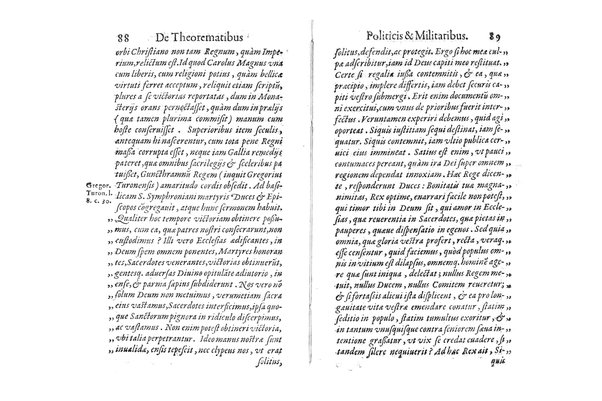 88 De Theorematibus
orbi Christiano non tam Regnum, quàm Impe-
rium, relictum est. Id quod Carolus Magnus vna
cum liberis, cum religioni potius, quàm bellicæ
virtuti ferret acceptum, reliquit etiam scriptū,
plures a se victorias reportatas, dum in Mona-
sterijs orans pernoctasset, quàm dum in prælijs
( qua tamen plurima commisit ) manum cum
hoste conseruisset. Superioribus item seculis,
antequam hi nascerentur, cum tota pene Regni
massa Christianissimi, neque iam Gallia remedijs
pateret, qua omnibus sacrilegijs & sceleribus pa-
tuisset, Gunchramnū Regem ( inquit Gregorius
Turonensis ) amaritudo cordis obsedit. Ad basi-
licam S. Symphroniani martyris Duces & Epi-
scopos cogregauit, atque hunc sermonem habuit.
Gregor.
Turon. l.
8. c. 30.
Qualiter hoc tempore victoriam obtinere possu-
mus, cum ea, qua patres nostri conseruarunt, non
custodimus? Illi vero Ecclesias ædificantes, in
Deum spem omnem ponentes, Martyres honoran-
tes, Sacerdotes venerantes, victorias obtinuerūt,
gentesq. aduersas Diuino opitulāte adiutorio, in
ense, & parma sæpius subdiderunt. Nos vero nō
solum Deum non metuimus, verumetiam sacra
eius vastamus, Sacerdotes interficimus, ipsa quo-
que Sanctorum pignora in ridiculo discerpimus,
ac vastamus. Non enim potest obtineri victoria,
vbi talia perpetrantur. Ideo manus nostræ sunt
inualida, ensis tepescit, nec clypeus nos, vt erat
solitus,
Politicis & Militaribus. 89
solitus, defendit, ac protegit. Ergo si hoc mea cul-
pa adscribitur, iam id Deus capiti meo restituat.
Certe si regalia iussa contemnitis, & ea, qua
præcipio, implere differtis, iam debet securis ca-
piti vestro submergi. Erit enim documentū om-
ni exercitui, cum vnus de prioribus fuerit inter-
fectus. Veruntamen experiri debemus, quid agi
oporteat. Siquis iustitiam sequi destinat, iam se-
quatur. Siquis contemnit, iam vltio publica cer-
uici eius immineat. Satius est enim, vt pauci
contumaces pereant, quàm ira Dei super omnem
regionem dependat innoxiam. Hac Rege dicen-
te, responderunt Duces: Bonitatis tua magna-
nimitas, Rex optime, enarrari facile non potest,
qui timor tibi in Deum sit, qui amor in Eccle-
sias, qua reuerentia in Sacerdotes, qua pietas in
pauperes, quaue dispensatio in egenos. Sed quia
omnia, qua gloria vestra profert, recta, veraq.
esse censentur, quid faciemus, quòd populus om-
nis in vitium est dilapsus, omnemq. hominē age-
re qua sunt iniqua, delectat; nullus Regem me-
tuit, nullus Ducem, nullus Comitem reueretur;
& si fortasis alicui ista displicent, & ea pro lon-
gauitate vita vestræ emendare conatur, statim
seditio in populo, statim tumultus exoritur, &
in tantum vnusquisque contra seniorem sæua in-
tentione grassatur, vt vix se credat euadere, si
tandem silere nequiuerit? Ad hac Rex ait, Si-
quis